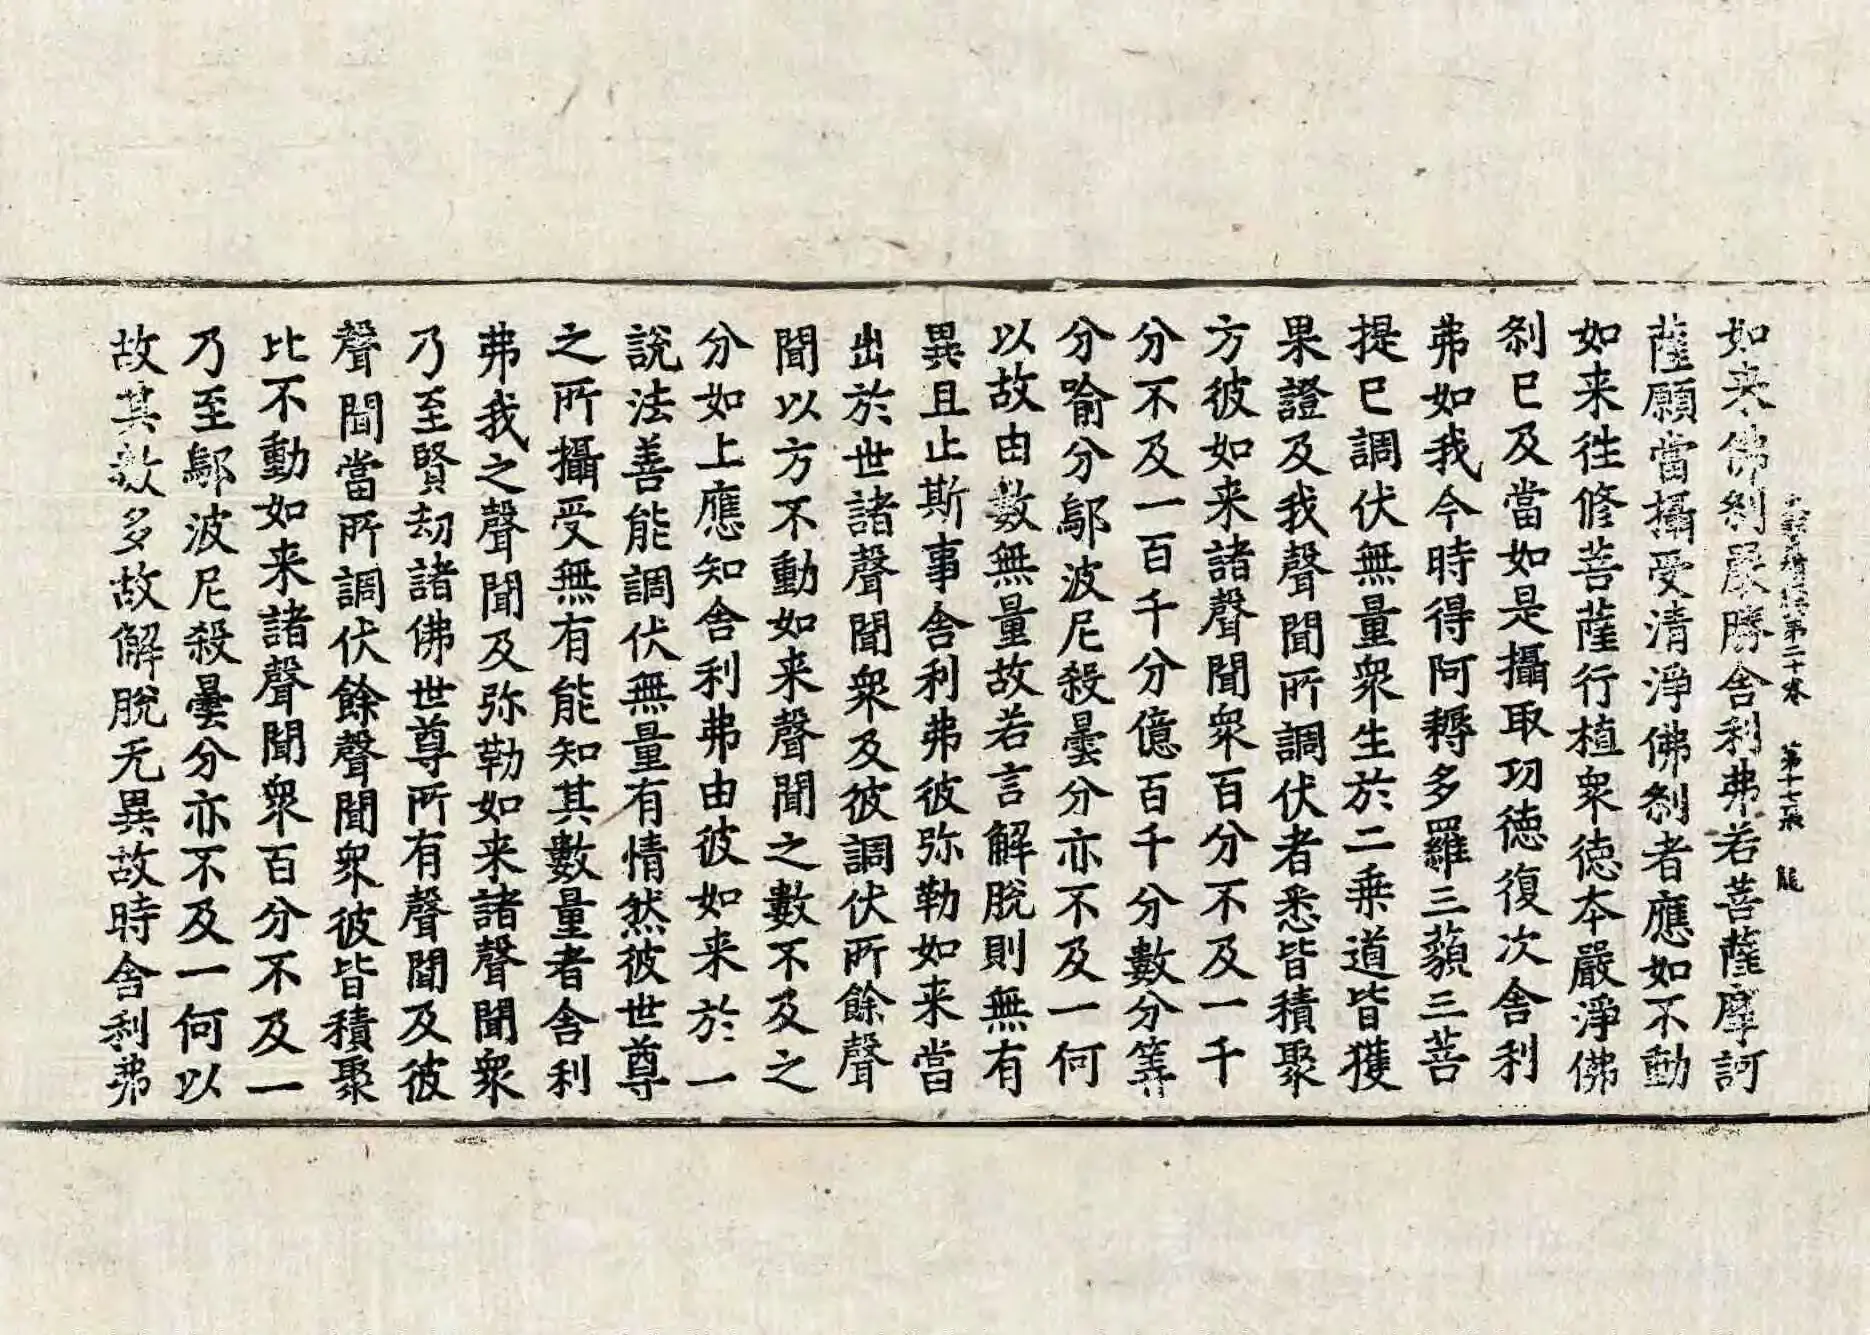 第二十卷 第十七張 龍
如来佛刹嚴勝舍利弗若菩薩摩訶
薩願當攝受清淨佛刹者應如不動
如来徃修菩薩行植衆徳夲嚴淨佛
刹巳及當如是攝取功徳復次舍利
弗如我今時得阿耨多羅三藐三菩
提巳調伏無量衆生於二乗道皆獲
果證及我聲聞所調伏者悉皆積聚
方彼如来諸聲聞衆百分不及一千
分不及一百千分億百千分數分筭
分喻分鄔波尼殺曇分亦不及一何
以故由數無量故若言解脫則無有
異且止斯事舍利弗彼弥勒如来當
出於世諸聲聞衆及彼調伏所餘聲
聞以方不動如来聲聞之數不及之
分如上應知舍利弗由彼如来於一
說法善能調伏無量有情然彼世尊
之所攝受無有能知其數量者舍利
弗我之聲聞及弥勒如来諸聲聞衆
乃至賢劫諸佛世尊所有聲聞及彼
聲聞當所調伏餘聲聞衆彼皆積聚
比不動如来諸聲聞衆百分不及一
乃至鄔波尼殺曇分亦不及一何以
故其數多故解脫无異故時舍利弗